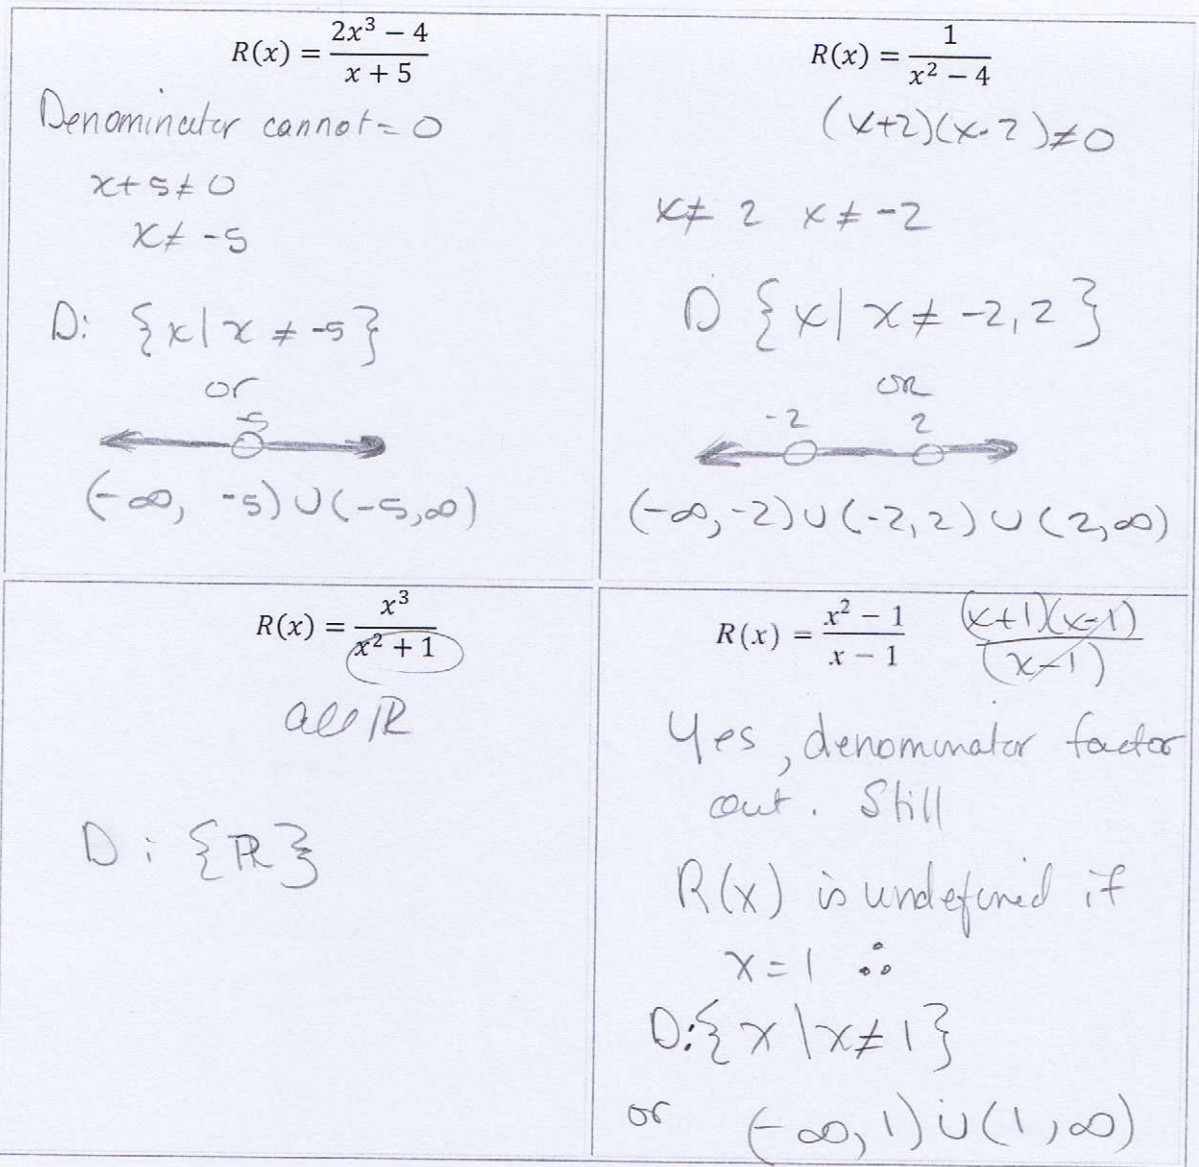 R(x) = (2x³ − 4)/(x + 5)
Denominator cannot = 0
x+5≠0
x≠ -5
D: {x|x ≠ -5}
or
-5
(-∞, -5)∪(-5,∞)
R(x) = 1/(x² − 4)
(x+2)(x-2)≠0
x≠ 2 x≠ -2
D {x|x≠ -2,2}
OR
-2 2
(-∞,-2)∪(-2,2)∪(2,∞)
R(x) = x³/(x² + 1)
all ℝ
D: {ℝ}
R(x) = (x² − 1)/(x − 1) (x+1)(x-1)/(x-1)
Yes, denominator factor
out. Still
R(x) is undefined if
x=1 ∴
D:{x|x≠1}
or (-∞,1)∪(1,∞)